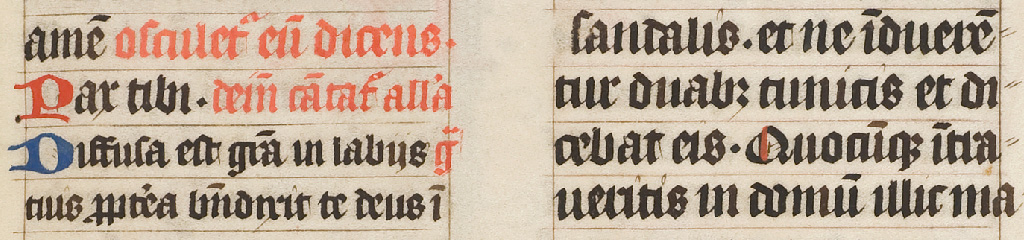 amē osculet᷑ eū dicens.
Pax tibi. deīn cātat᷑ all'a
Diffusa est grā in labijs gᷓ
tuis ꝓpterea bn̄dixit te deus ī
sandalis. et ne īduerē
tur duabꝫ tunicis et di
cebat eis. Quocūqꝫ ītra
ueritis in domū illic ma